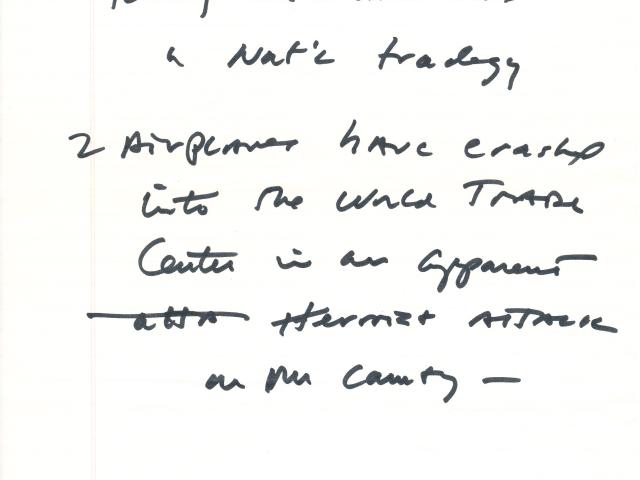 a Nat'l tradegy
2 AirPLANes hAve crashed
into the World TRADe
Center in an apparent
atta terrorist ATTACK
on our country —